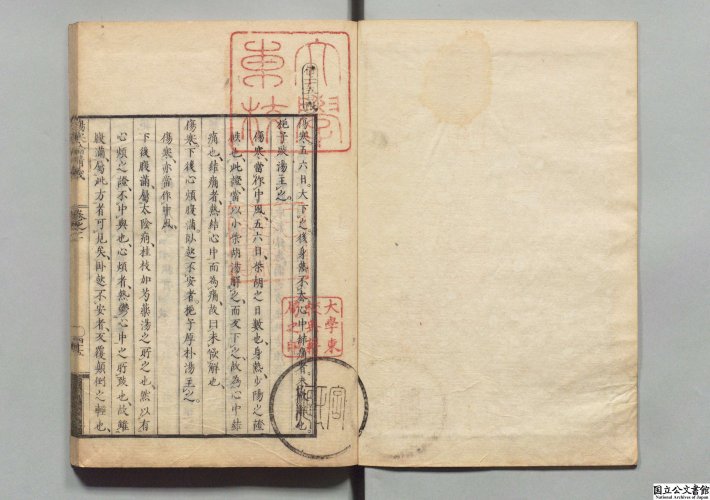 傷寒五六日、大下之後、身熱不去、心中結痛者、未欲解也、
梔子豉湯主之。
傷寒當作中風、五六日、柴胡之日數也、身熱、少陽之證
候也、此證當以小柴胡湯解之、而反下之、故為心中結
痛也、結痛者、熱結心中而為痛、故曰未欲解也、
傷寒下後、心煩腹滿、臥起不安者、梔子厚朴湯主之。
傷寒亦當作中風、
下後腹滿、屬太陰病、桂枝加芍藥湯之所之也、然以有
心煩之證、不中與也、心煩者、熱鬱心中之所致也、故雖
腹滿、屬此方者可見矣、臥起不安者、反覆顛倒之輕也、
卷之二
文學
東校
大學東
校典籍
局之印
国立公文書館
National Archives of Japan